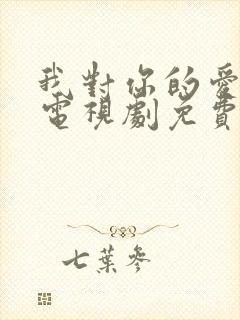 我對你的愛
電視劇免費
七葉參